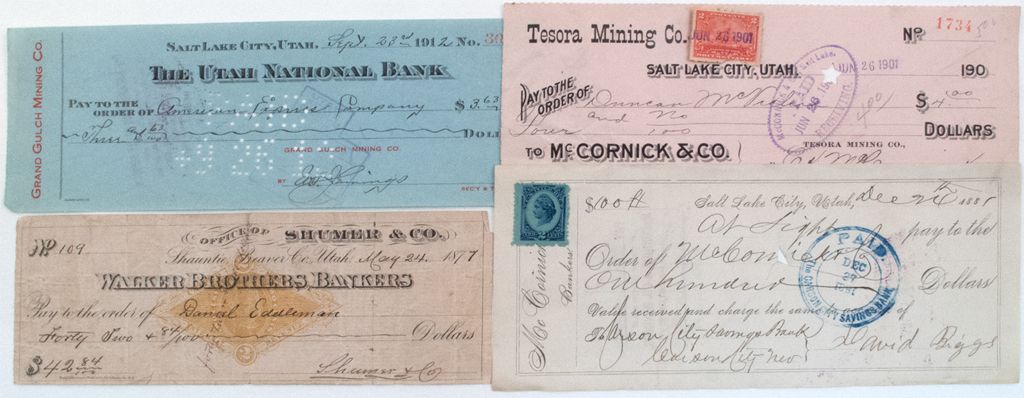 GRAND GULCH MINING CO.
SALT LAKE CITY, UTAH, Sept. 23rd 1912 No. 30
THE UTAH NATIONAL BANK
PAY TO THE
ORDER OF American Express Company $3.63
Three and 63 DOLL
GRAND GULCH MINING CO.
BY
SEC'Y & T
Tesora Mining Co. No 1734
2 JUN 26 1901 2
SALT LAKE CITY, UTAH, JUN 26 1901 190
PAY TO THE
ORDER OF Duncan $4.00
Four and no
100 DOLLARS
PAID
JUN 26 190
TO MCCORNICK & CO. TESORA MINING CO.,
No 109 OFFICE OF SHUMER & CO.
Shauntie, Beaver Co. Utah. May 24, 1877
WALKER BROTHERS, BANKERS
Pay to the order of Daniel Eddleman
Forty Two & 84/100 Dollars
$42 84
Shumer & Co
$100 Salt Lake City, Utah, Dec 24th 1881
At Sight pay to the
Order of McCornick
One hundred Dollars
Value received and charge the same of
To Carson City Savings Bank
Carson City Nev David Biggs
Bankers
PAID
DEC
27
SAVINGS BANK